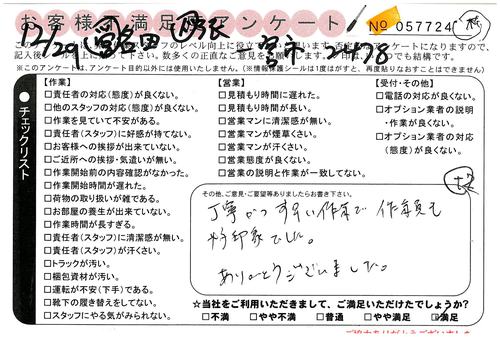 お客様ご満足度アンケート
No 057724
チェックリスト
【作業】
□責任者の対応(態度)が良くない。
□他のスタッフの対応(態度)が良くない。
□作業を見ていて不安がある。
□責任者(スタッフ)に好感が持てない。
□お客様への挨拶が出来ていない。
□ご近所への挨拶・気遣いが無い。
□作業開始前の内容確認がなかった。
□作業開始時間が遅れた。
□荷物の取り扱いが雑である。
□お部屋の養生が出来ていない。
□作業時間が長すぎる。
□責任者(スタッフ)に清潔感が無い。
□責任者(スタッフ)が汗くさい。
□トラックが汚い。
□梱包資材が汚い。
□運転が不安(下手)である。
□靴下の履き替えをしてない。
□スタッフにやる気がみられない。
【営業】
□見積もり時間に遅れた。
□見積もり時間が長い。
□営業マンに清潔感が無い。
□営業マンが煙草くさい。
□営業マンが汗くさい。
□営業態度が良くない。
□営業の説明と作業が一致してない。
【受付・その他】
□電話の対応が良くない。
□オプション業者の説明
・作業が良くない。
□オプション業者の対応
(態度)が良くない。
その他、ご意見・ご要望等ありましたらお書き下さい。
丁寧かつすばやい作業で 作業員も
好印象でした。
ありがとうございました。
☆当社をご利用いただきまして、ご満足いただけたでしょうか?
□不満 □やや不満 □普通 □やや満足 □満足